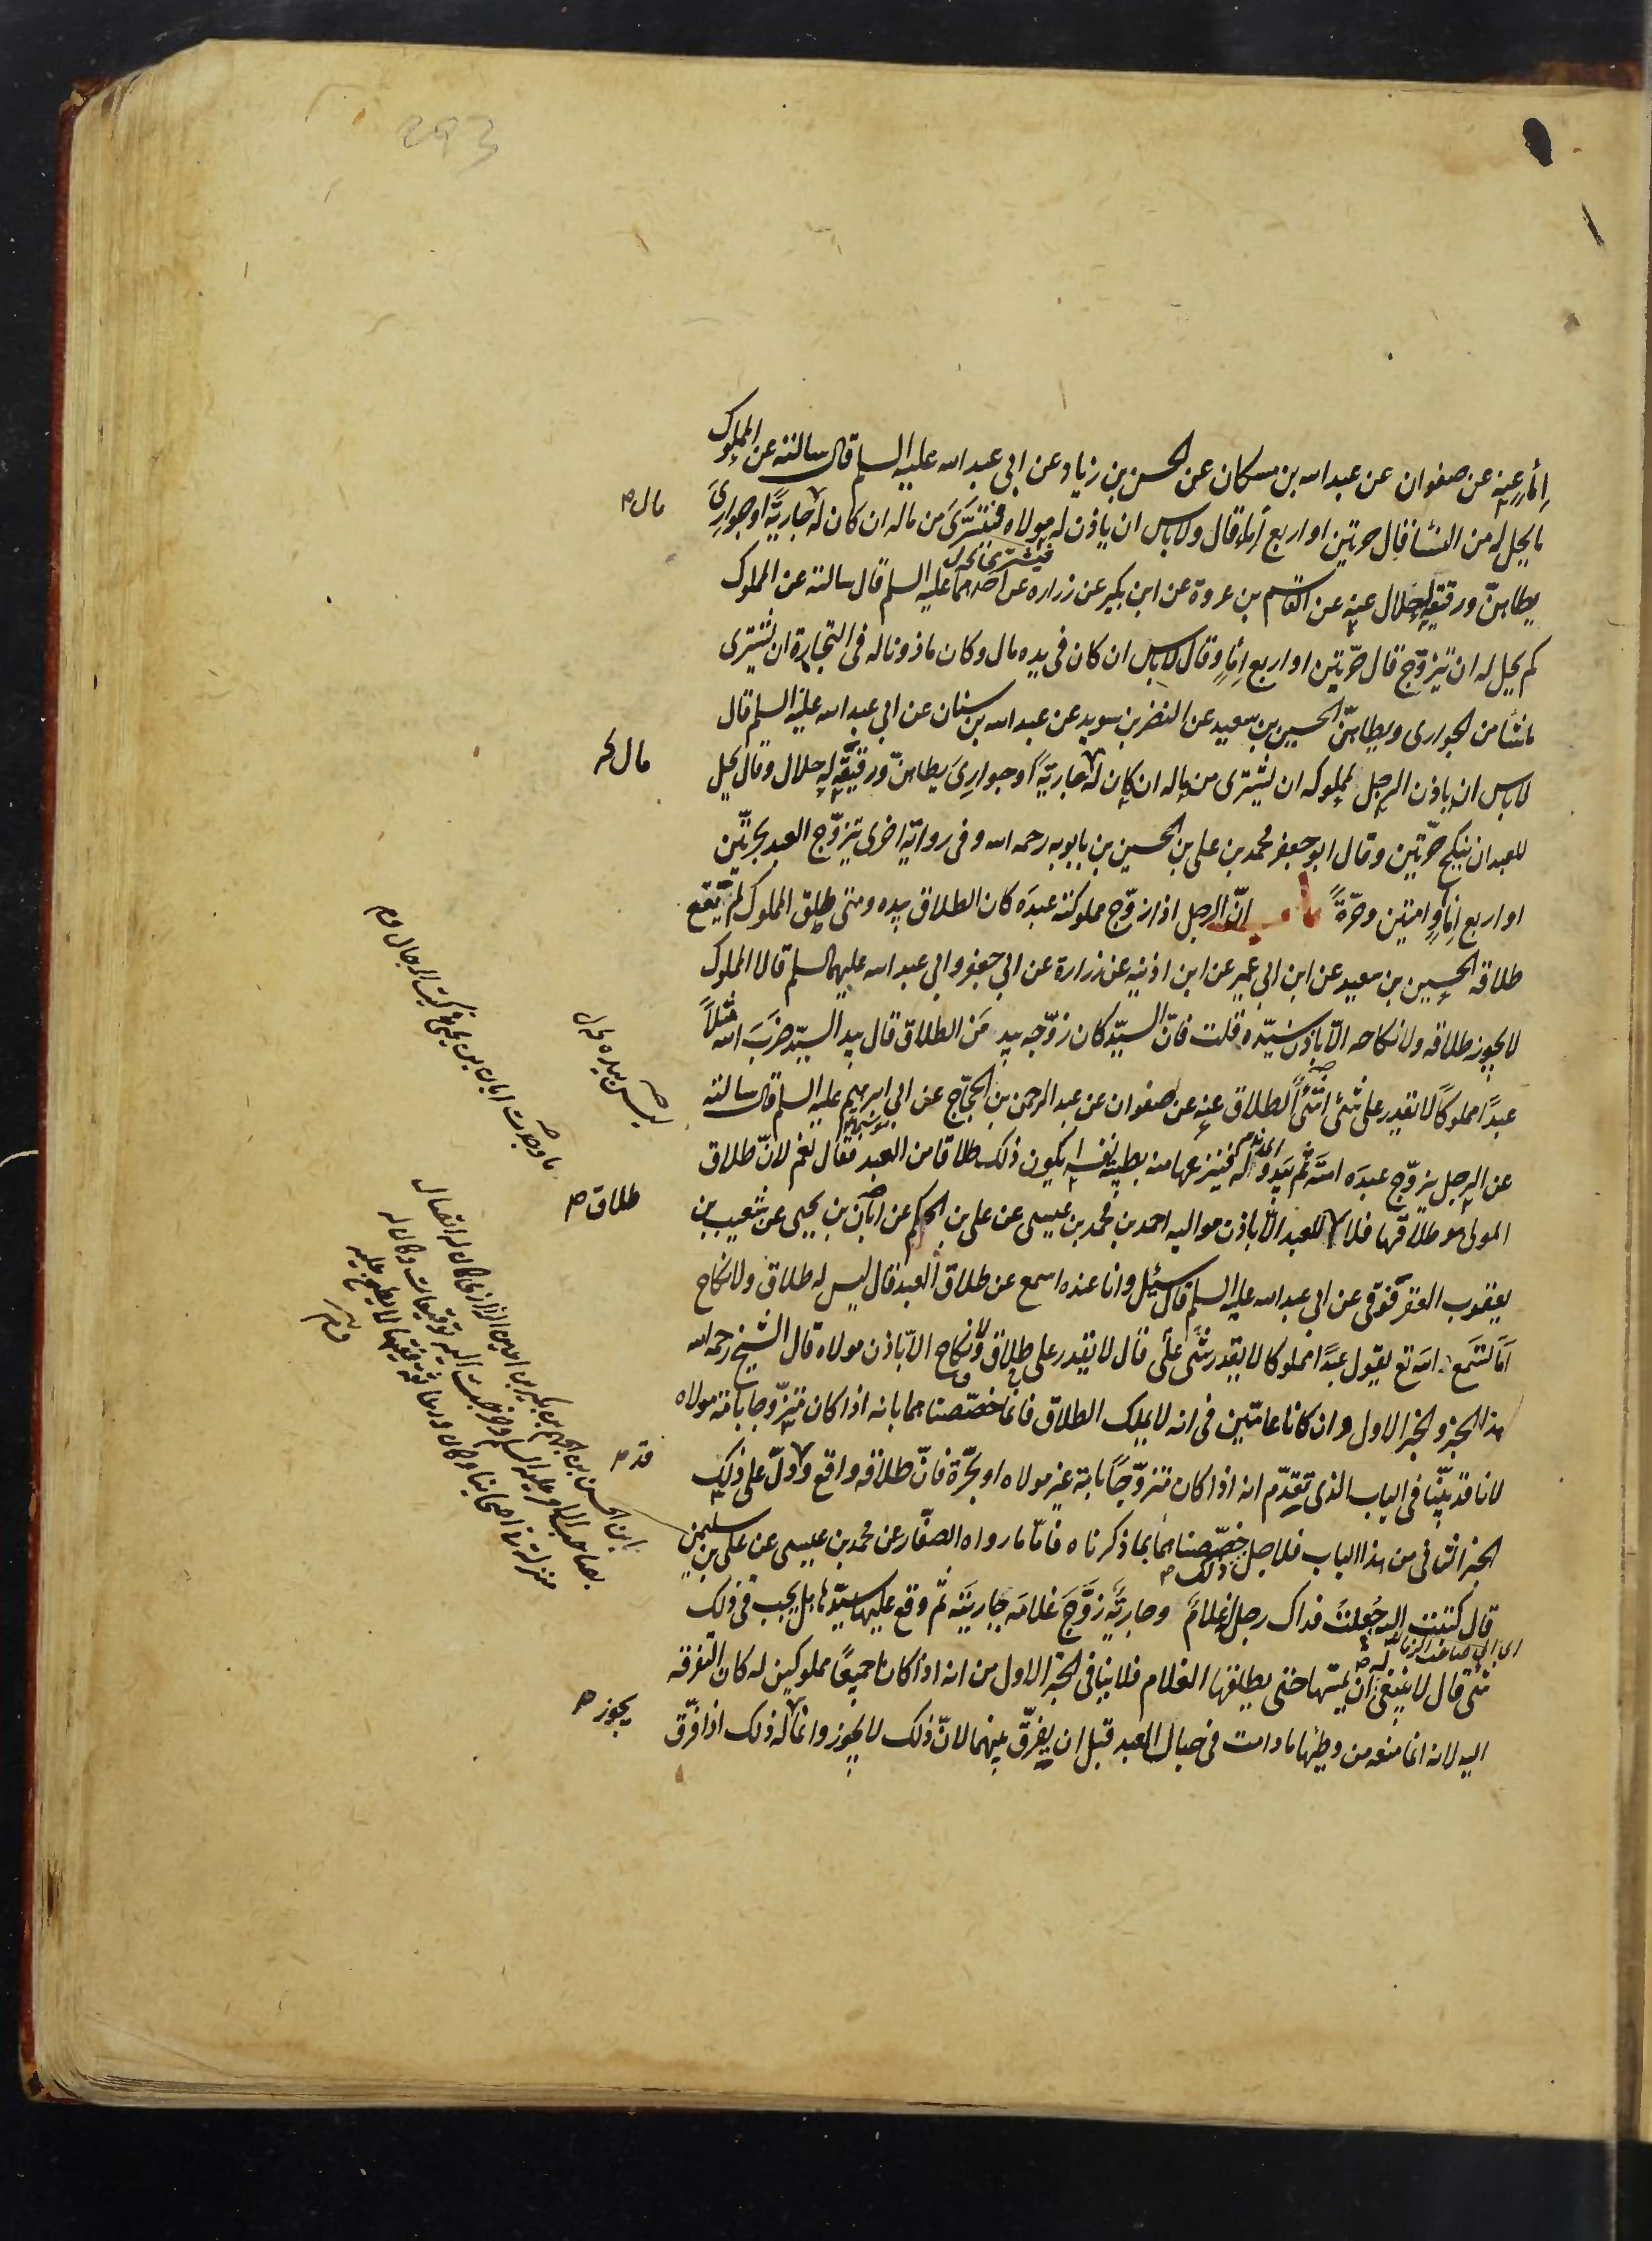 إماء عنه عن صفوان عن عبد الله بن مسكان عن الحسن بن زياد عن ابى عبد الله عليه السلم قال سالته عن المملوك
ما يحل له من النساء فقال حرتين او اربع إماء قال ولا باس ان ياذن له مولاه فيشترى من ماله ان كان له جارية او جوارى
يطاهن ورقيقه له حلال عنه عن القاسم بن عروة عن ابن بكير عن زراره عن احدهما عليه السلم قال سالته عن المملوك
كم يحل له ان تيزوّج قال حرّتين او اربع إماء وقال لا باس ان كان فى يده مال وكان ماذونا له فى التجارة ان يشترى
ما شاء من الجوارى ويطاهنّ الحسين بن سعيد عن النضر بن سويد عن عبد الله بن سنان عن ابى عبد الله عليه السلم قال
لا باس ان ياذن الرجل لمملوكه ان يشترى من ماله ان كان له جارية او جوارى يطاهنّ ورقيقه له حلال وقال يحل
للعبد ان ينكح حرّتين وقال ابو جعفر محمد بن على بن الحسين بن بابويه رحمه الله وفى رواية اخرى يتزوّج العبد بحرّتين
او اربع إماء او امتين وحرّةً باب انّ الرجل اذا زوّج مملوكته عبده كان الطلاق بيده ومتى طلق المملوك لم يقع
طلاقه الحسين بن سعيد عن ابن ابى عمير عن ابن اذينه عن زرارة عن ابى جعفر وابى عبد الله عليهما السلم قالا المملوك
لا يجوز طلاقه ولا نكاحه الّا باذن سيّده قلت فانّ السيّد كان زوّجه بيد من الطلاق قال بيد السيّد ضرب الله مثلاً
عبدًا مملوكًا لا يقدر على شئ أفشئ الطلاق عنه عن صفوان عن عبد الرحمن بن الحجّاج عن ابى ابرهيم عليه السلم قال سالته
عن الرجل يزوّج عبده امته ثم يبدو له فينزعها منه بطيبة نفسه ايكون ذلك طلاقا من العبد فقال نعم لانّ طلاق
المولى هو طلاقها فلا للعبد الّا باذن مواليه احمد بن محمد بن عيسى عن على بن الحكم عن ابان بن يحيى عن شعيب بن
يعقوب العقرقوفى عن ابى عبد الله عليه السلم قال سئل وانا عنده اسمع عن طلاق العبد قال ليس له طلاق ولا نكاح
اما تسمع الله تع يقول عبدًا مملوكا لا يقدر على شئ قال لا يقدر على طلاق ولا نكاح الّا باذن مولاه قال الشيخ رحمه الله
هذا الخبر والخبر الاول وان كانا عامّين فى انه لا يملك الطلاق فانّما خصّصناهما بانه اذا كان متزوّجا بامة مولاه
لانا قد بيّنّا فى الباب الذى تقدّم انه اذا كان متزوّجًا بامة غير مولاه او بحّرة فانّ طلاقه واقع ودلّ على ذلك
الخبر الثانى من هذا الباب فلاجل ذلك خصّصناهما بما ذكرناه فامّا ما رواه الصفّار عن محمد بن عيسى عن على بن سليمن
قال كتبت اليه جعلت فداك رجل له غلام وجارية زوّج غلامه جاريته ثم وقع عليها سيّدها هل يجب فى ذلك
شئ قال لا ينبغى له ان يمسّها حتى يطلقها الغلام فلا ينافى الخبر الاول من انه اذا كانا جميعًا مملوكين له كان التفرقه
اليه لانه انما منعه من وطيها ما دامت فى حبال العبد قبل ان يفرّق بينهما لانّ ذلك لا يجوز وانما له ذلك اذا فرّق
مال م
طلاق م
قد م
يجوز م
ما وجدت ابان بن يحيى فى كتب الرجال
293